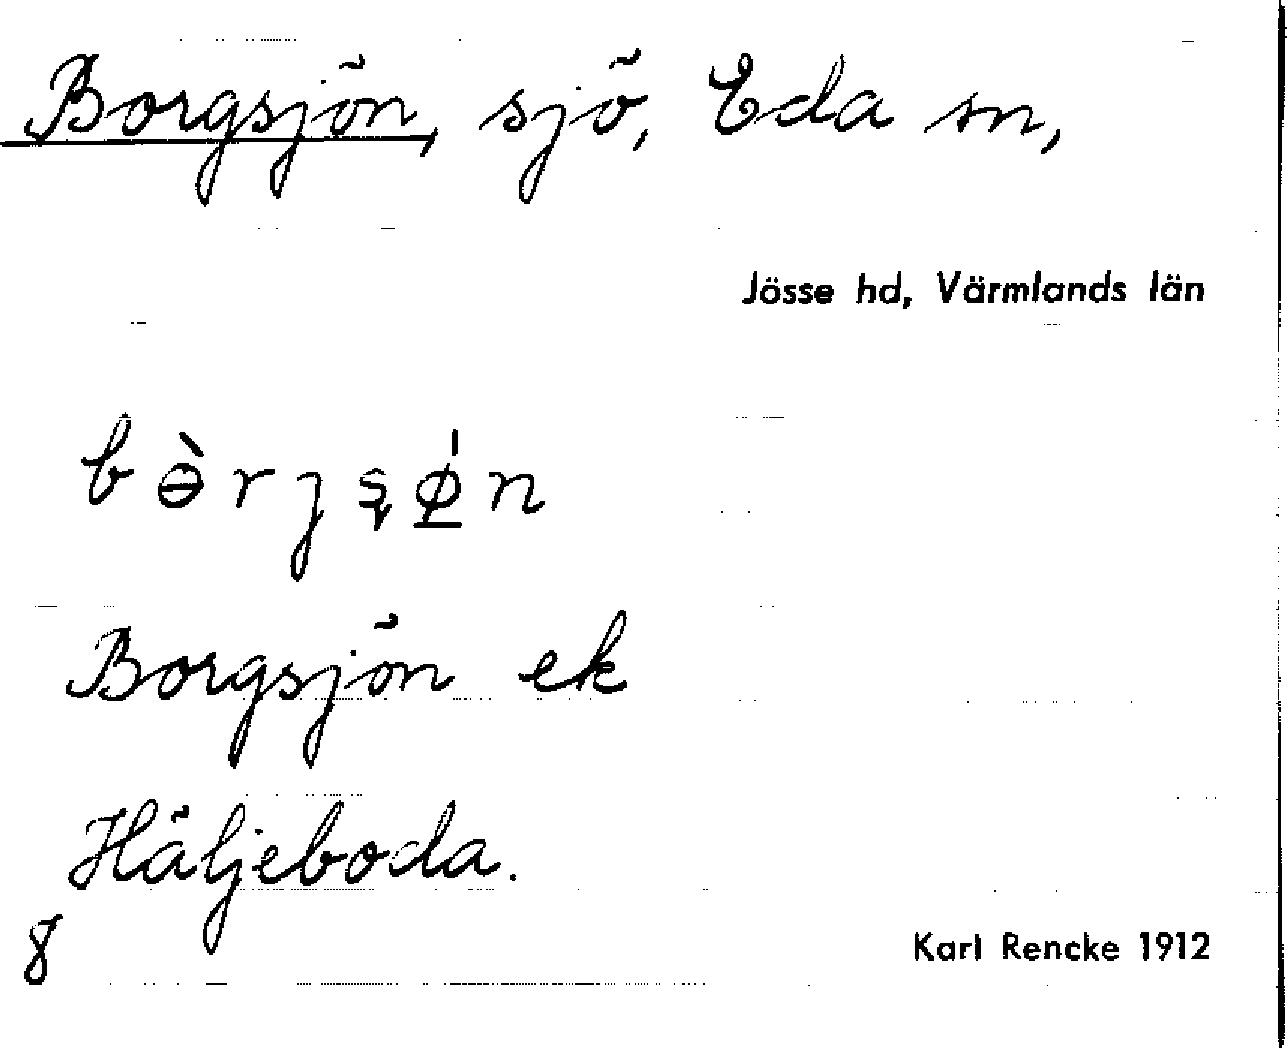 Borgsjön, sjö, Eda sn,
Jösse hd, Värmlands län
bɵ̀rjʂǿ̲n
Borgsjön ek
Häljeboda.
8
Karl Rencke 1912